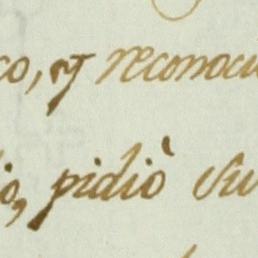 co, et reconociò
io, pidiò Su